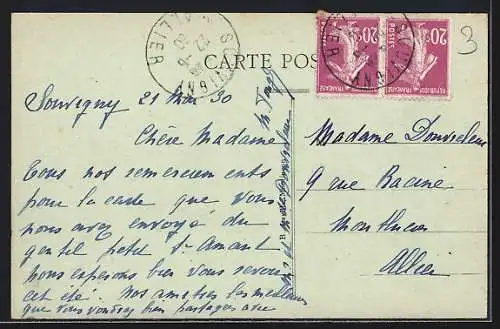 CARTE POS
SOUVIGNY
ALLIER
20c
POSTES
REPUBLIQUE FRANÇAISE
20c
POSTES
REPUBLIQUE FRANÇAISE
3
Souvigny 21 Mai 30
Chère Madame
Tous nos remerciements
pour la carte que vous
nous avez envoyé du
gentil petit St Amant
nous espérons bien vous revoir
cet été. Nos amitiés les meilleures
que vous voudrez bien partager avec
Madame
9 rue Racine
Montluçon
Allier